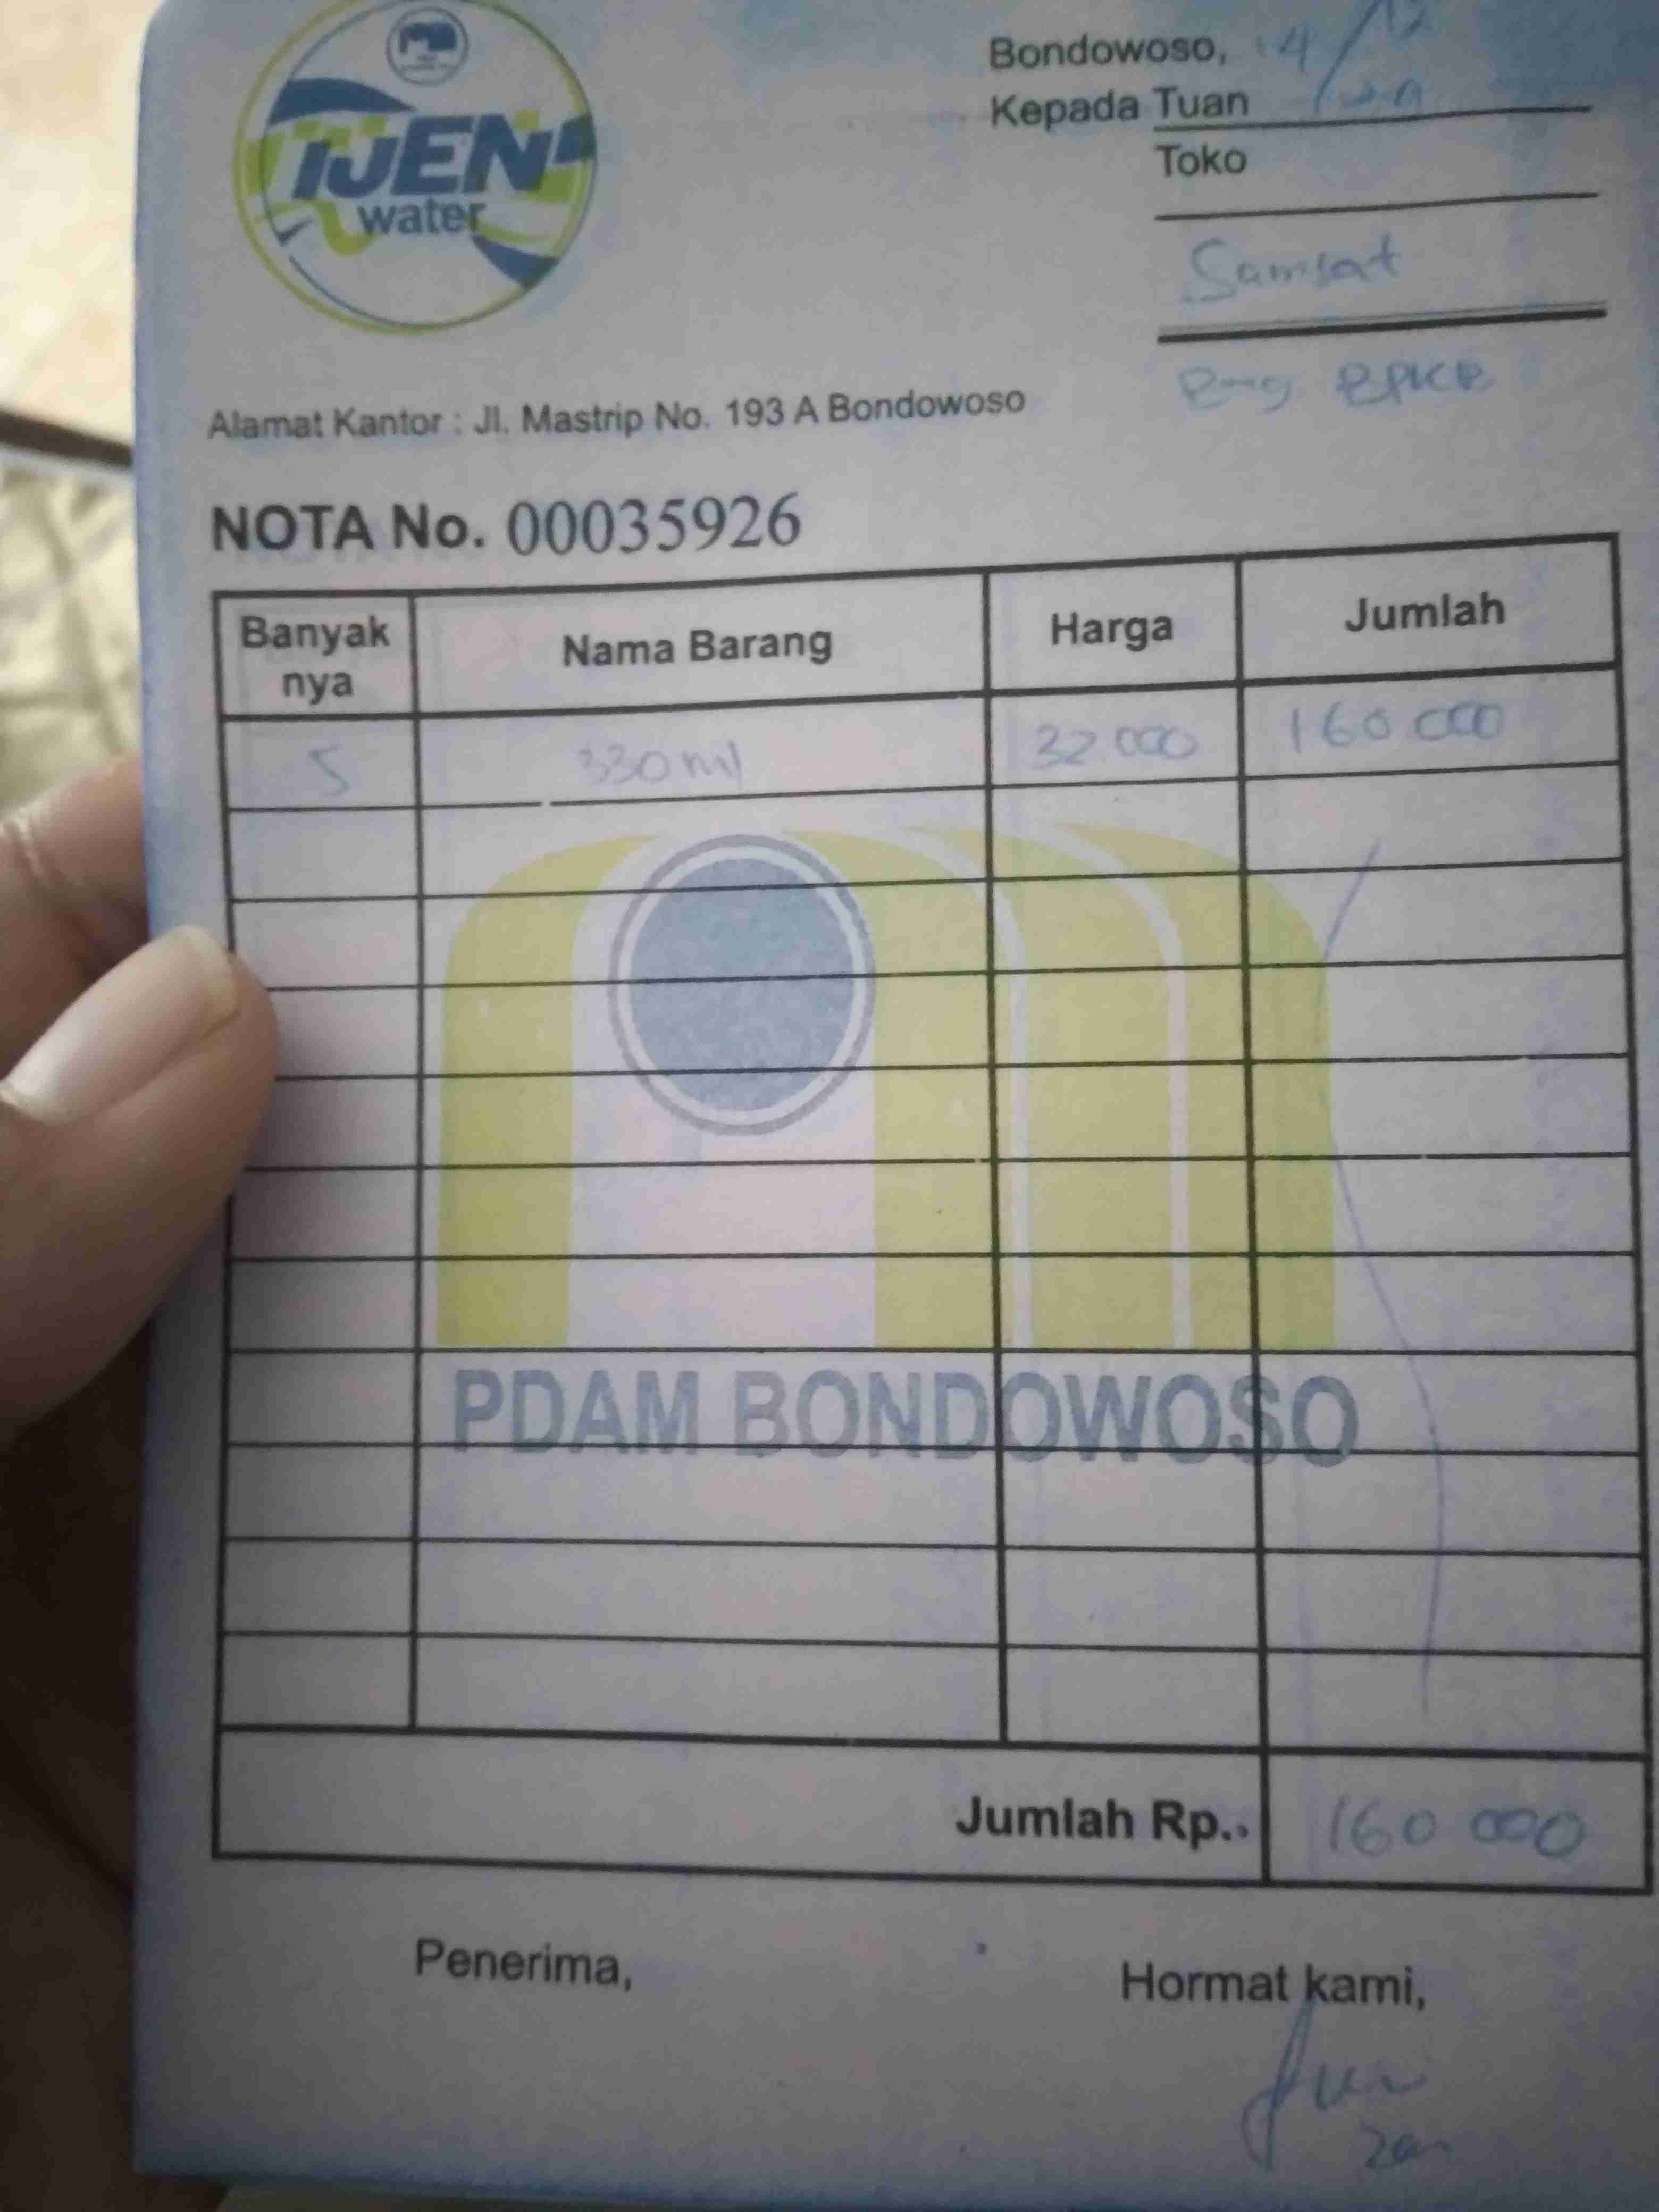 IJEN
water
Bondowoso, 14/12
Kepada Tuan
Toko
Samsat
BPKB
Alamat Kantor : Jl. Mastrip No. 193 A Bondowoso
NOTA No. 00035926
Banyak nya Nama Barang Harga Jumlah
5 330 ml 32.000 160 000
PDAM BONDOWOSO
Jumlah Rp.. 160 000
Penerima, Hormat kami,